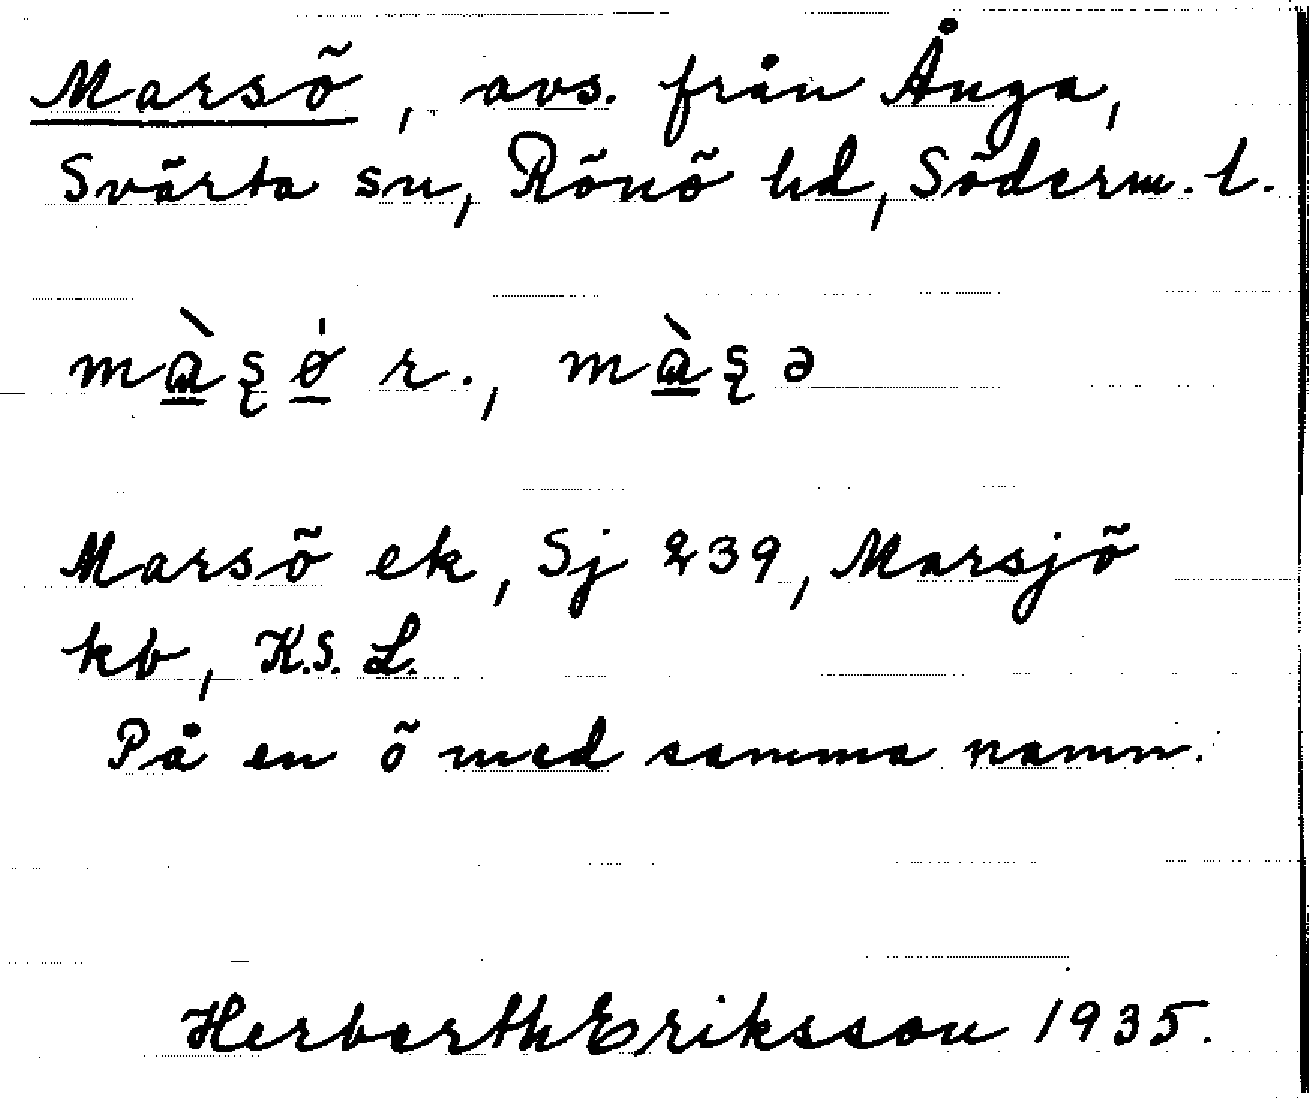 Marsö, avs. från Ånga,
Svärta sn, Rönö hd, Söderm. l.
màʂø r., màʂə
Marsö ek, Sj 239, Marsjö
kb, K.S. L.
På en ö med samma namn.
Herberth Eriksson 1935.